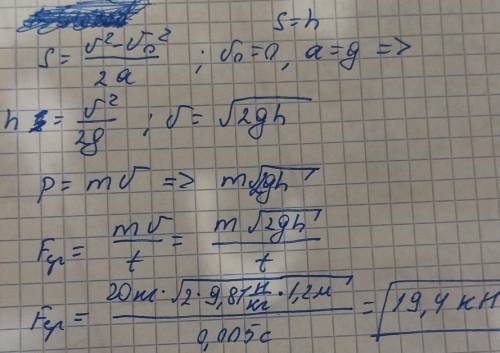 S=h
S = (v² - v₀²) / 2a ; v₀ = 0, a = g =>
h = v² / 2g ; v = √(2gh)
p = mv => m√(2gh)
Fср = mv / t = m√(2gh) / t
Fср = 20кг · √(2 · 9,81 н/кг · 1,2м) / 0,005с = 19,4 кН